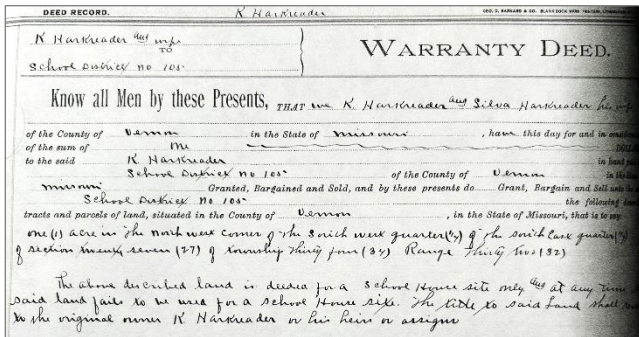 DEED RECORD. K Harkreader GEO. D. BARNARD & CO.
K Harkreader and wife
TO
School District no 105
WARRANTY DEED.
Know all Men by these Presents, THAT we K. Harkreader and Silva Harkreader his wife
of the County of Vernon in the State of Missouri, have this day for and in
of the sum of One
to the said K Harkreader in hand
School District no 105 of the County of Vernon in the
Missouri Granted, Bargained and Sold, and by these presents do Grant, Bargain and Sell unto the
School District no 105 the following
tracts and parcels of land, situated in the County of Vernon, in the State of Missouri, that is to say:
one (1) acre in the North west corner of the South west quarter (1/4) of the South East quarter (1/4)
of section twenty seven (27) of township Thirty four (34) Range Thirty two (32)
The above described land is deeded for a School House site only and at any time
said land fails to be used for a school House site. The title to said Land shall
to the original owner K Harkreader or his heirs or assigns